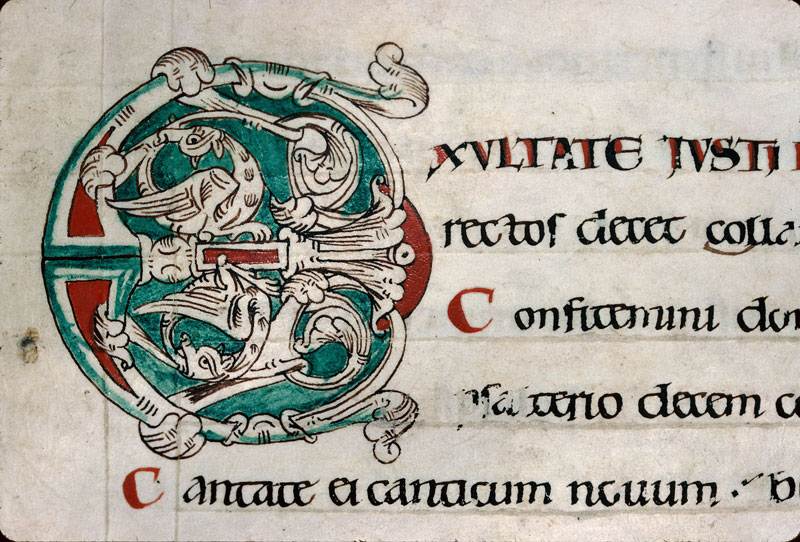 EXULTATE IUSTI
rectos decet colla
Confitemini dom
psalterio decem co
Cantate ei canticum novum · b